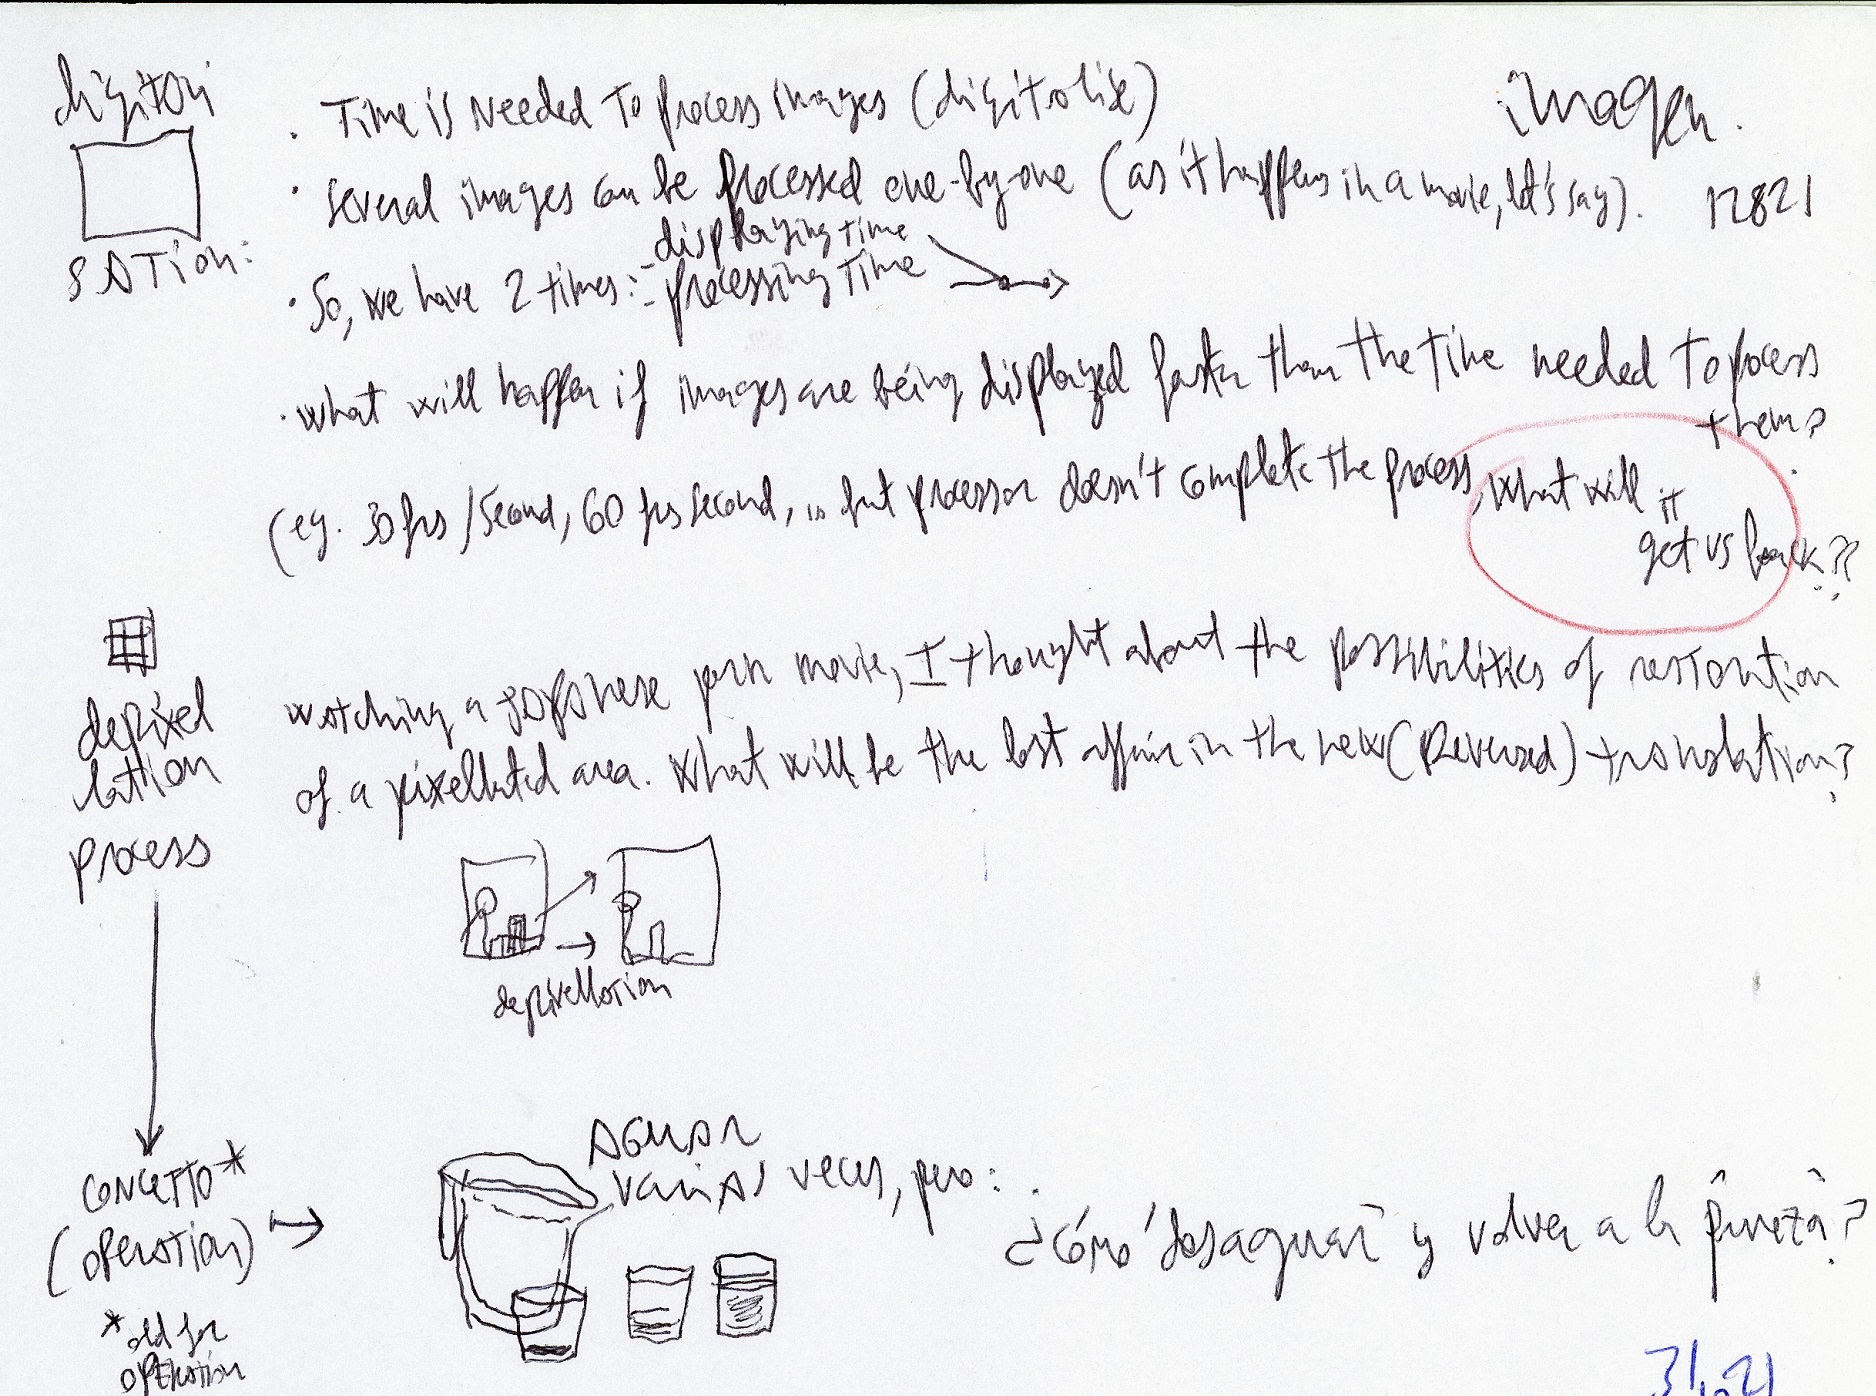 imagen.
12821
digitali
SATION:
· Time is needed to process images (digitalise)
· Several images can be processed one-by-one (as it happens in a movie, let's say).
· So, we have 2 times:
- displaying time
- processing time
· what will happen if images are being displayed faster than the time needed to process
them?
(eg. 30 fps/second, 60 fps second, but processor doesn't complete the process, what will it
get us back??
depixel
lation
process
watching a japanese porn movie, I thought about the possibilities of restoration
of a pixellated area. What will be the lost in the new (Reversed) translation?
depixellation
CONCETTO*
(operation)
* old for
operation
AGUAR
VARIAS veces, pero:
¿Cómo "desaguar" y volver a la "pureza"?